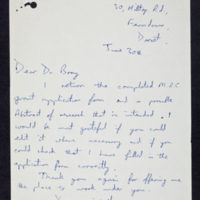 30, Hilley Rd.
Ferndown
Dorset.
June 30th
Dear Dr Bray
I return the completed M.R.C
grant application form and a possible
Abstract of research that is intended. I
would be most grateful if you could
edit it where necessary and if you
could check that I have filled the
application form correctly.
Thank you again for offering me
the place to work under you.